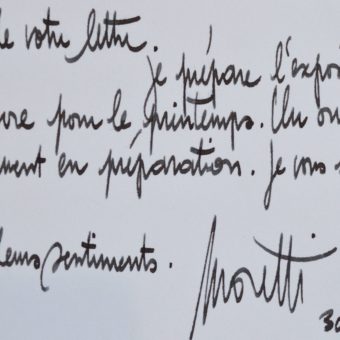 de votre lettre.
Je prépare l'expo
pour le printemps. Un
en préparation. Je vous
sentiments.
Moretti
30